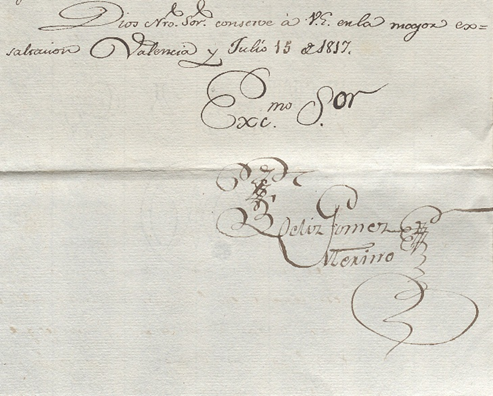 Dios Nro. Sor. conserve á V.E. en la mayor ex=
saltacion Valencia y Julio 15 de 1817.
Exc.mo S.or
Feliz Gomez
Merino